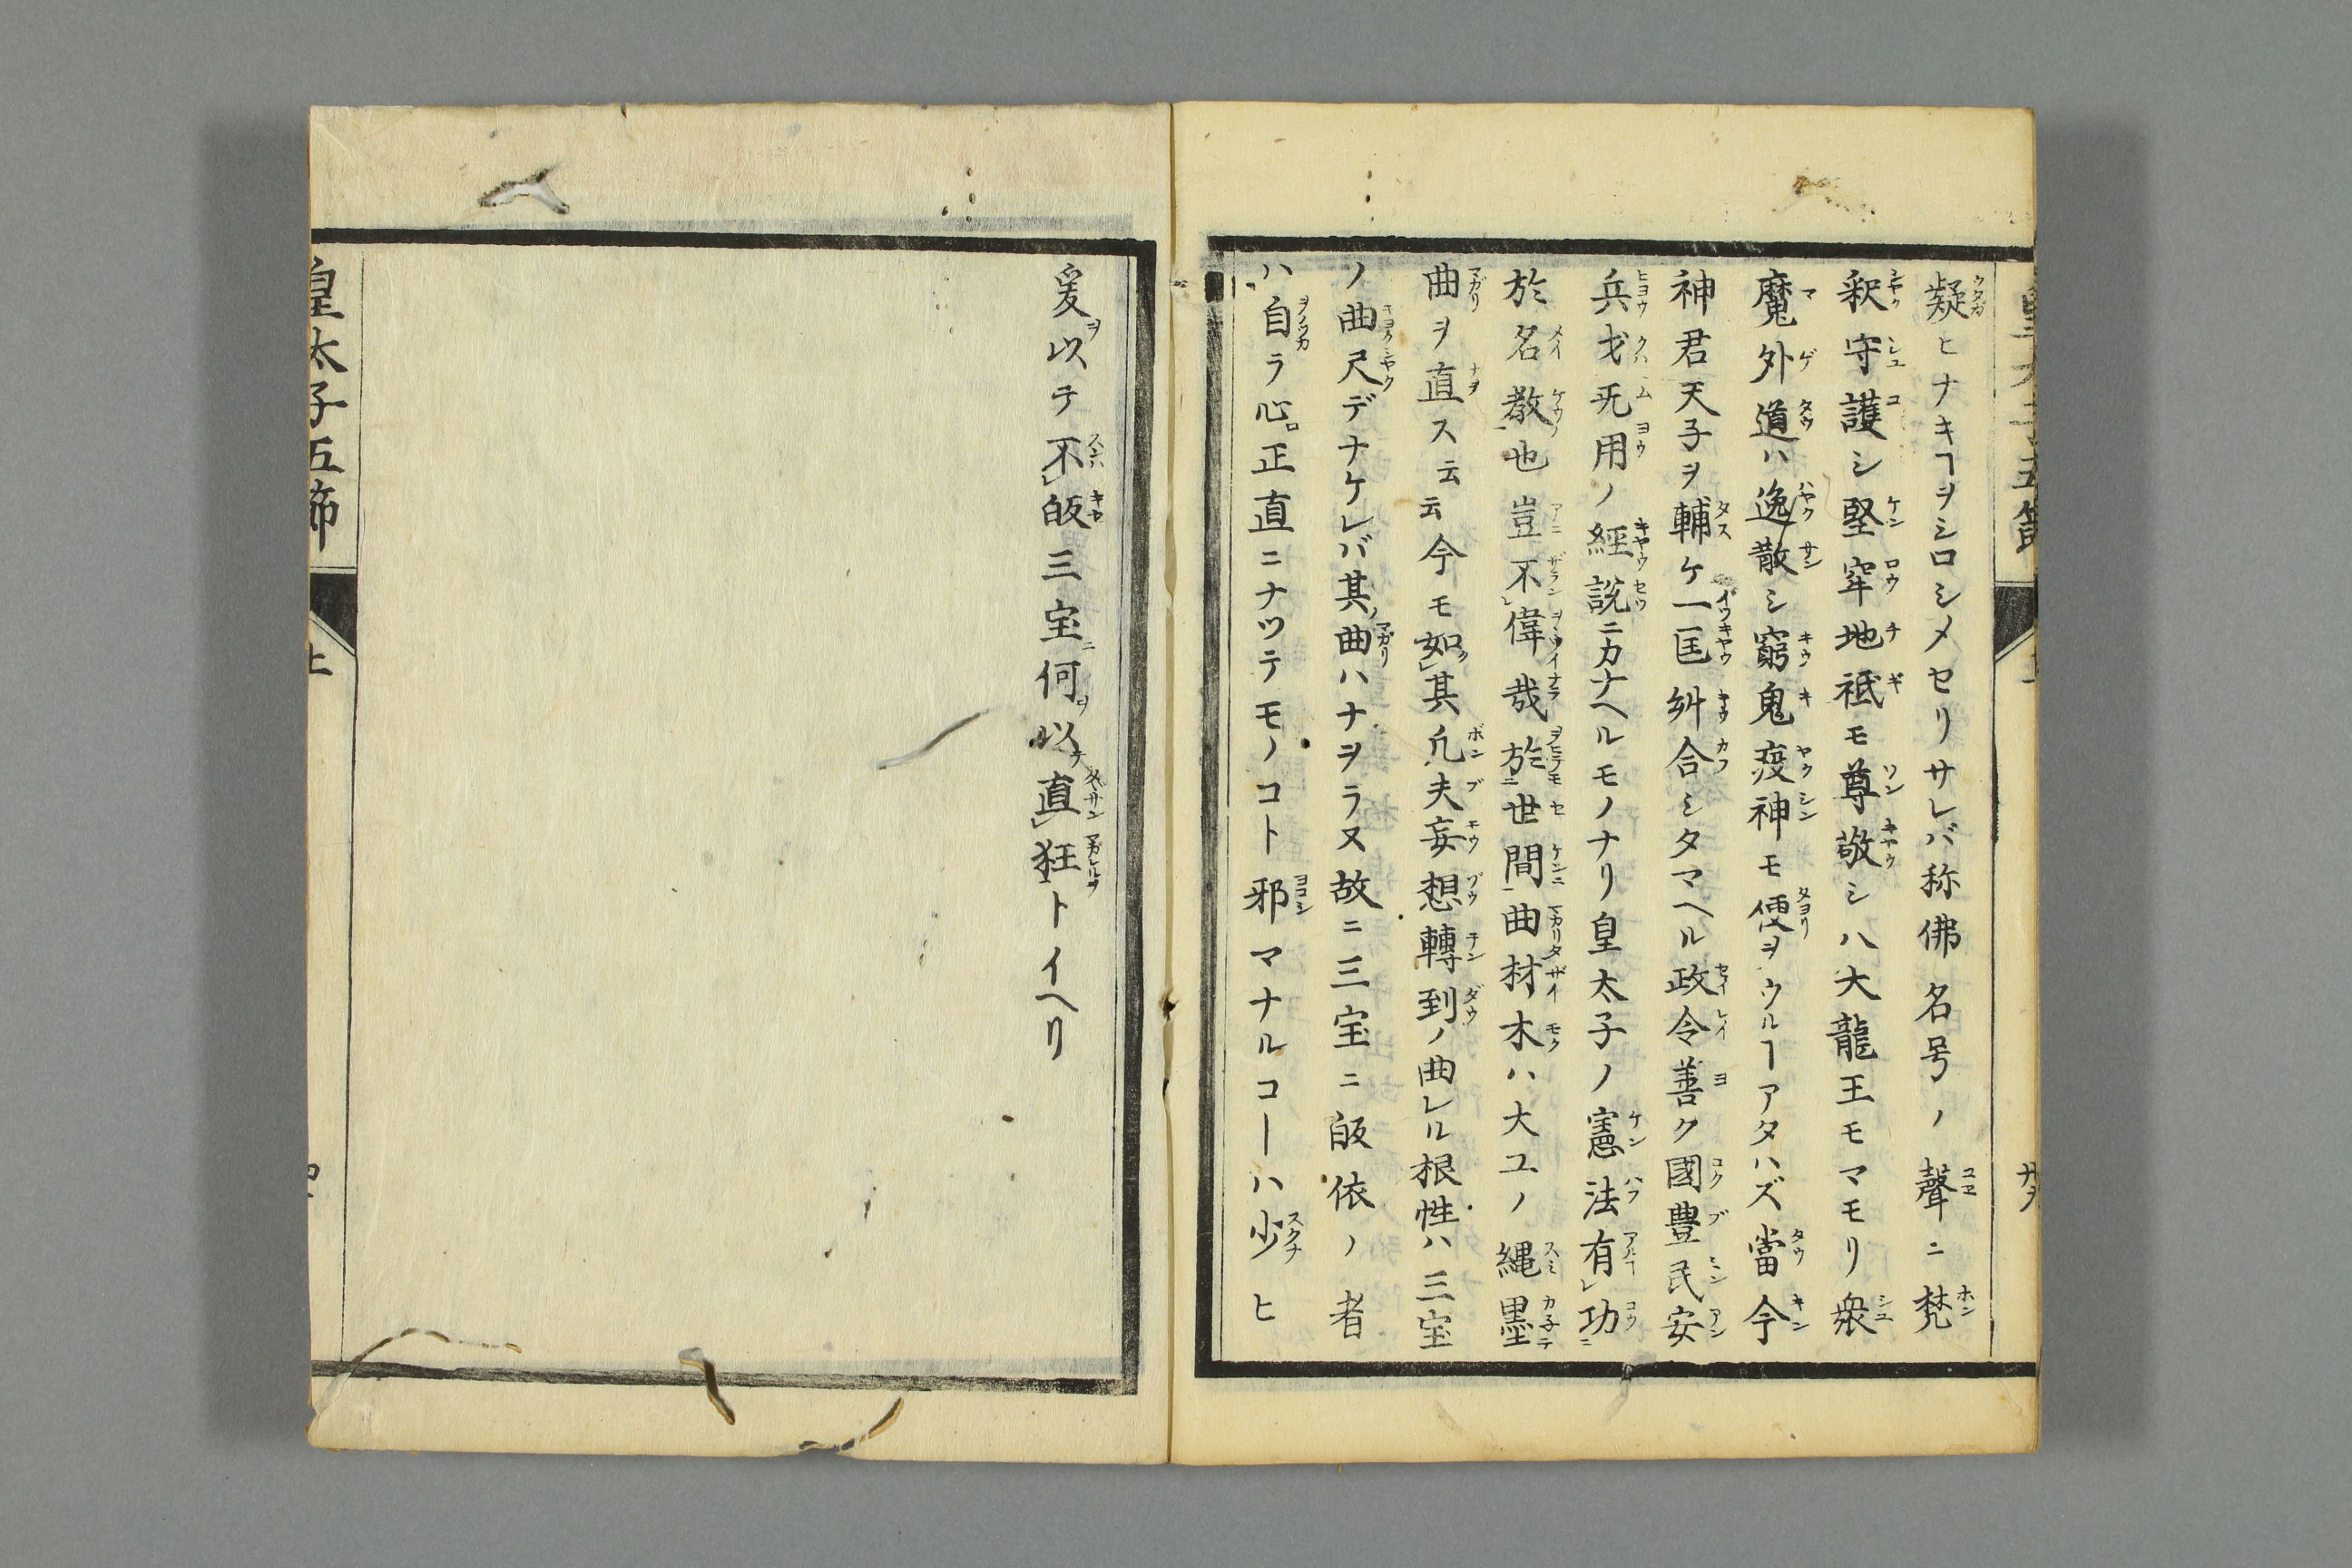 疑ヒナキヿヲシロシメセリサレバ称佛名号ノ聲ニ梵
釈守護シ堅牢地祗モ尊敬シ八大龍王モマモリ衆
魔外道ハ逸散シ窮鬼疫神モ便ヲウルヿアタハズ當今
神君天子ヲ輔ケ一匡糾合シタマヘル政令善ク國豊民安
兵戈旡用ノ經說ニカナヘルモノナリ皇太子ノ憲法有㆑功
於名教也豈不㆑偉哉於世間曲材木ハ大工ノ縄墨
曲ヲ直ス云云今モ如㆑其凢夫妄想轉到ノ曲レル根性ハ三宝
ノ曲尺デナケレバ其曲ハナヲラヌ故ニ三宝ニ皈依ノ者
ハ自ラ心正直ニナツテモノコト邪マナルコーハ少ヒ
爰以テ不㆑皈三宝何以直㆑狂トイヘリ
皇太子五節
上